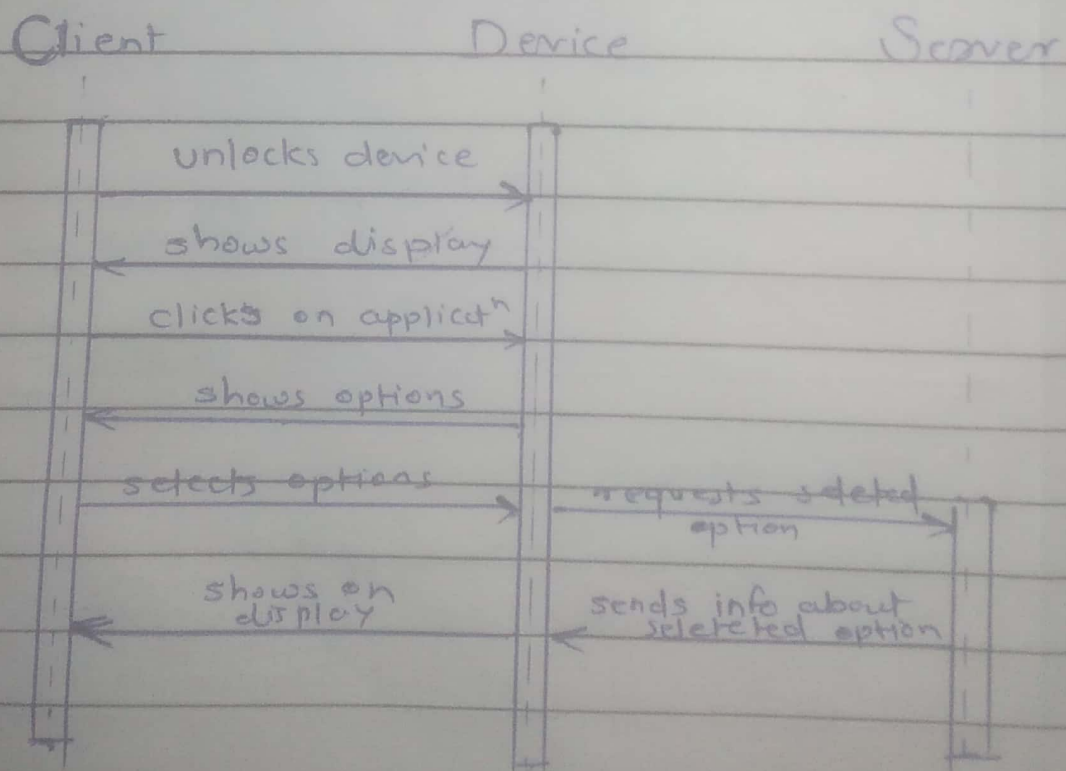 Client Device Server
unlocks device
shows display
clicks on applicatⁿ
shows options
selects options requests seleted
option
shows on sends info about
display seleteted option